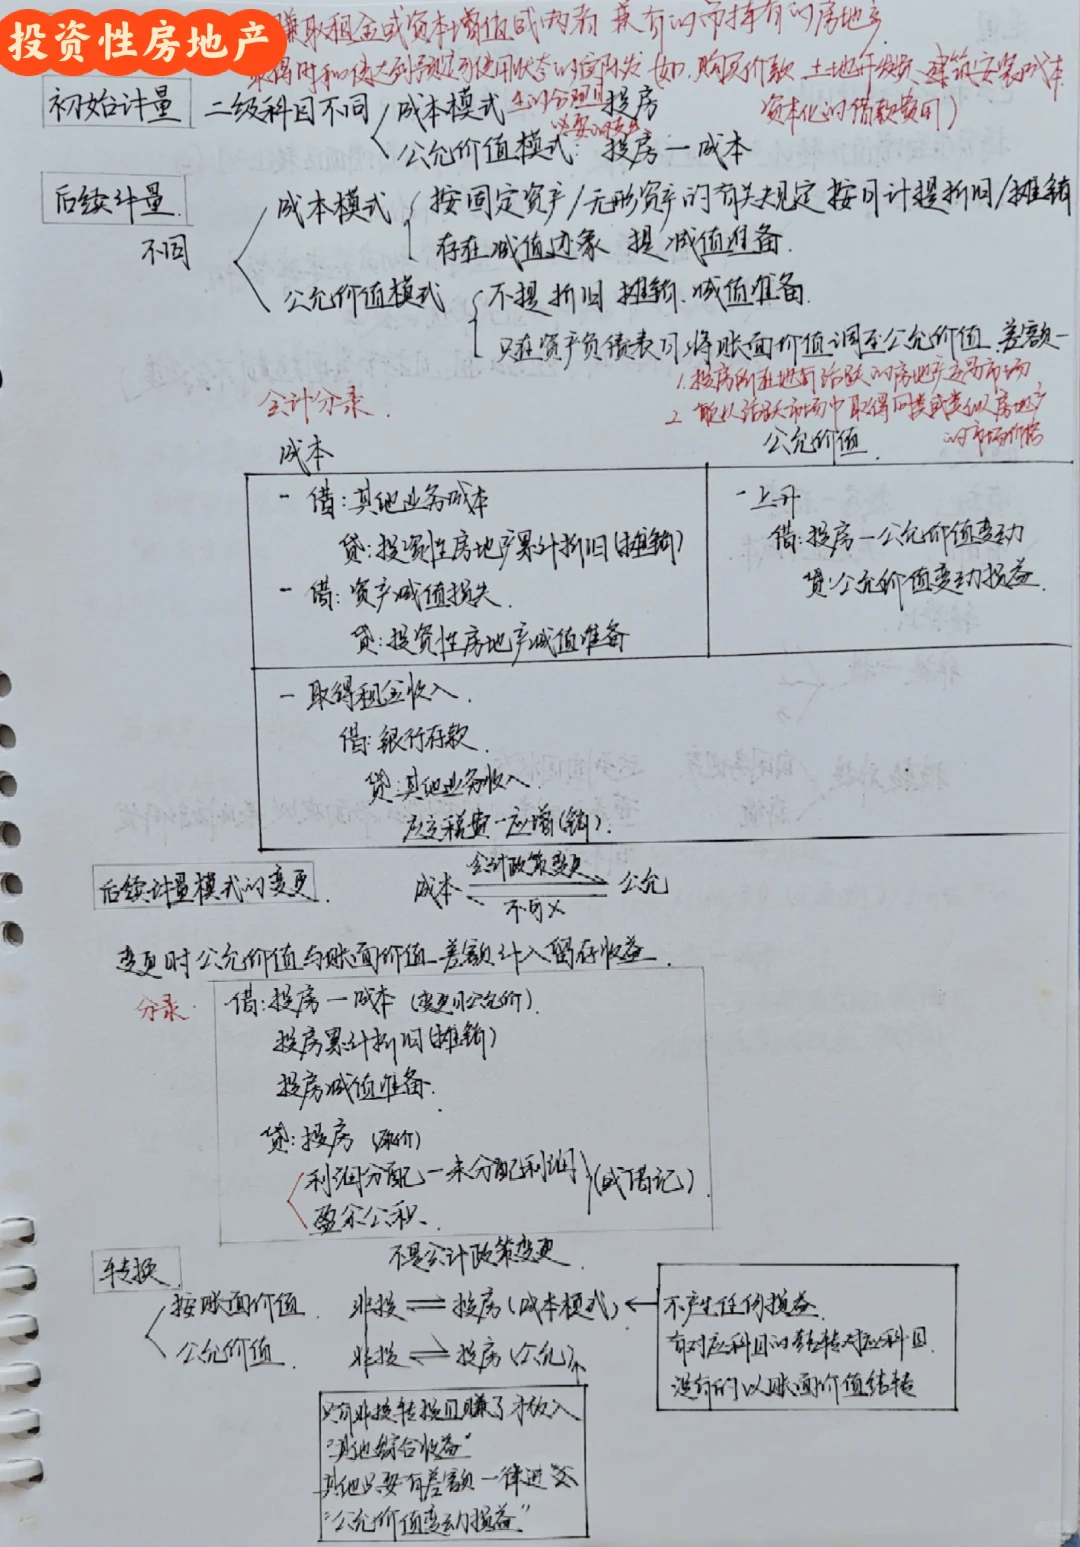 投资性房地产
赚取租金或资本增值或两者兼有的而持有的房地产
取得时和使达到预定可使用状态的实际发 如:购买价款 土地开发费、建筑安装成本
资本化的借款费用)
初始计量 二级科目不同 成本模式 投房
公允价值模式: 投房一成本
后续计量
不同
成本模式 按固定资产/无形资产的有关规定 按月计提折旧/摊销
存在减值迹象 提 减值准备.
公允价值模式 不提折旧 摊销、减值准备.
只在资产负债表日,将账面价值调至公允价值 差额一
1.投房所在地有活跃的房地产交易市场
2. 能从活跃市场中取得同类或类似房地产
的市场价格
会计分录.
成本
公允价值
- 借:其他业务成本
贷:投资性房地产累计折旧(摊销)
- 借:资产减值损失.
贷:投资性房地产减值准备
- 上升
借:投房一公允价值变动
贷:公允价值变动损益.
- 取得租金收入.
借:银行存款.
贷:其他业务收入
应交税费一应增(销).
后续计量模式的变更.
成本 会计政策变更 公允
不可×
变更时公允价值与账面价值 差额计入留存收益.
分录.
借:投房一成本(变更日公允价).
投房累计折旧(摊销)
投房减值准备.
贷:投房(原价)
利润分配一未分配利润
盈余公积.
(或借记).
转换
不是会计政策变更
按账面价值 非投⇌投房(成本模式)←
公允价值 非投⇌投房(公允)
不产生任何损益.
有对应科目的结转对应科目.
没有的以账面价值结转
只有非投转投且赚了才放入
"其他综合收益"
其他只要有差额一律进
"公允价值变动损益"